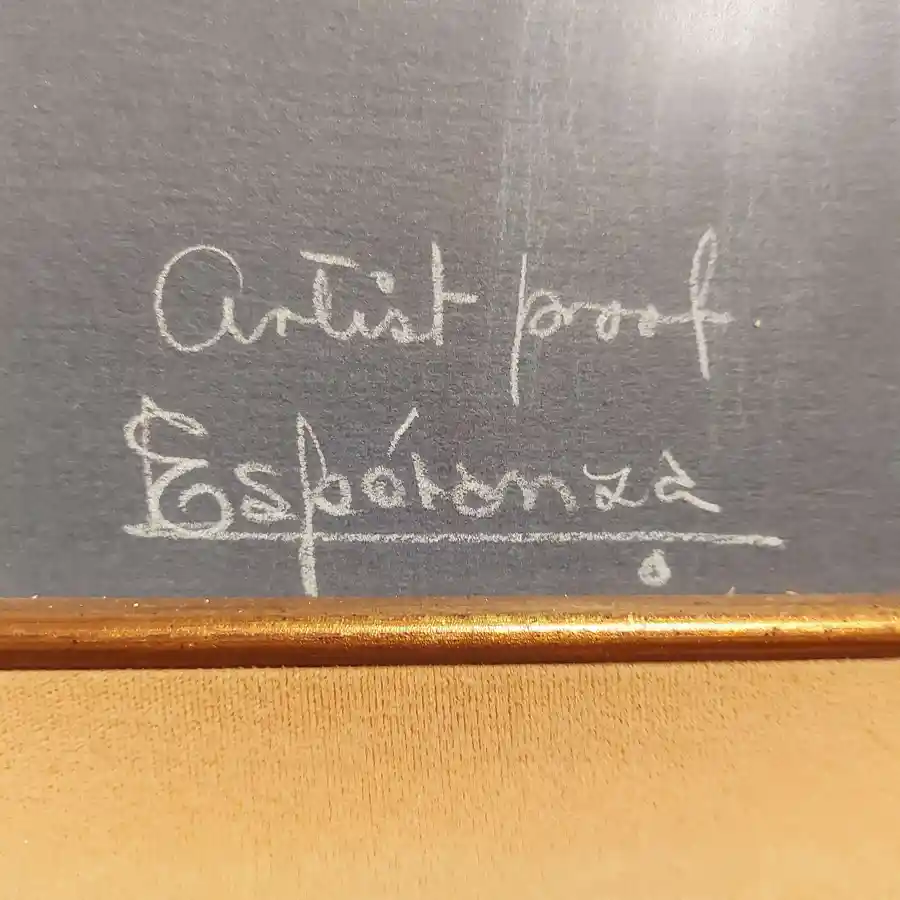 Artist proof
Espéronza